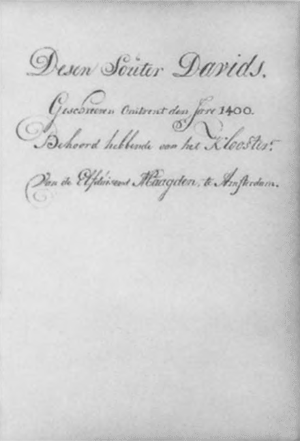 Desen Souter Davids.
Geschreven Omtrent den Jare 1400.
Behoord hebbende aan het Klooster
Van de Elfduisent Maagden, te Amsterdam.